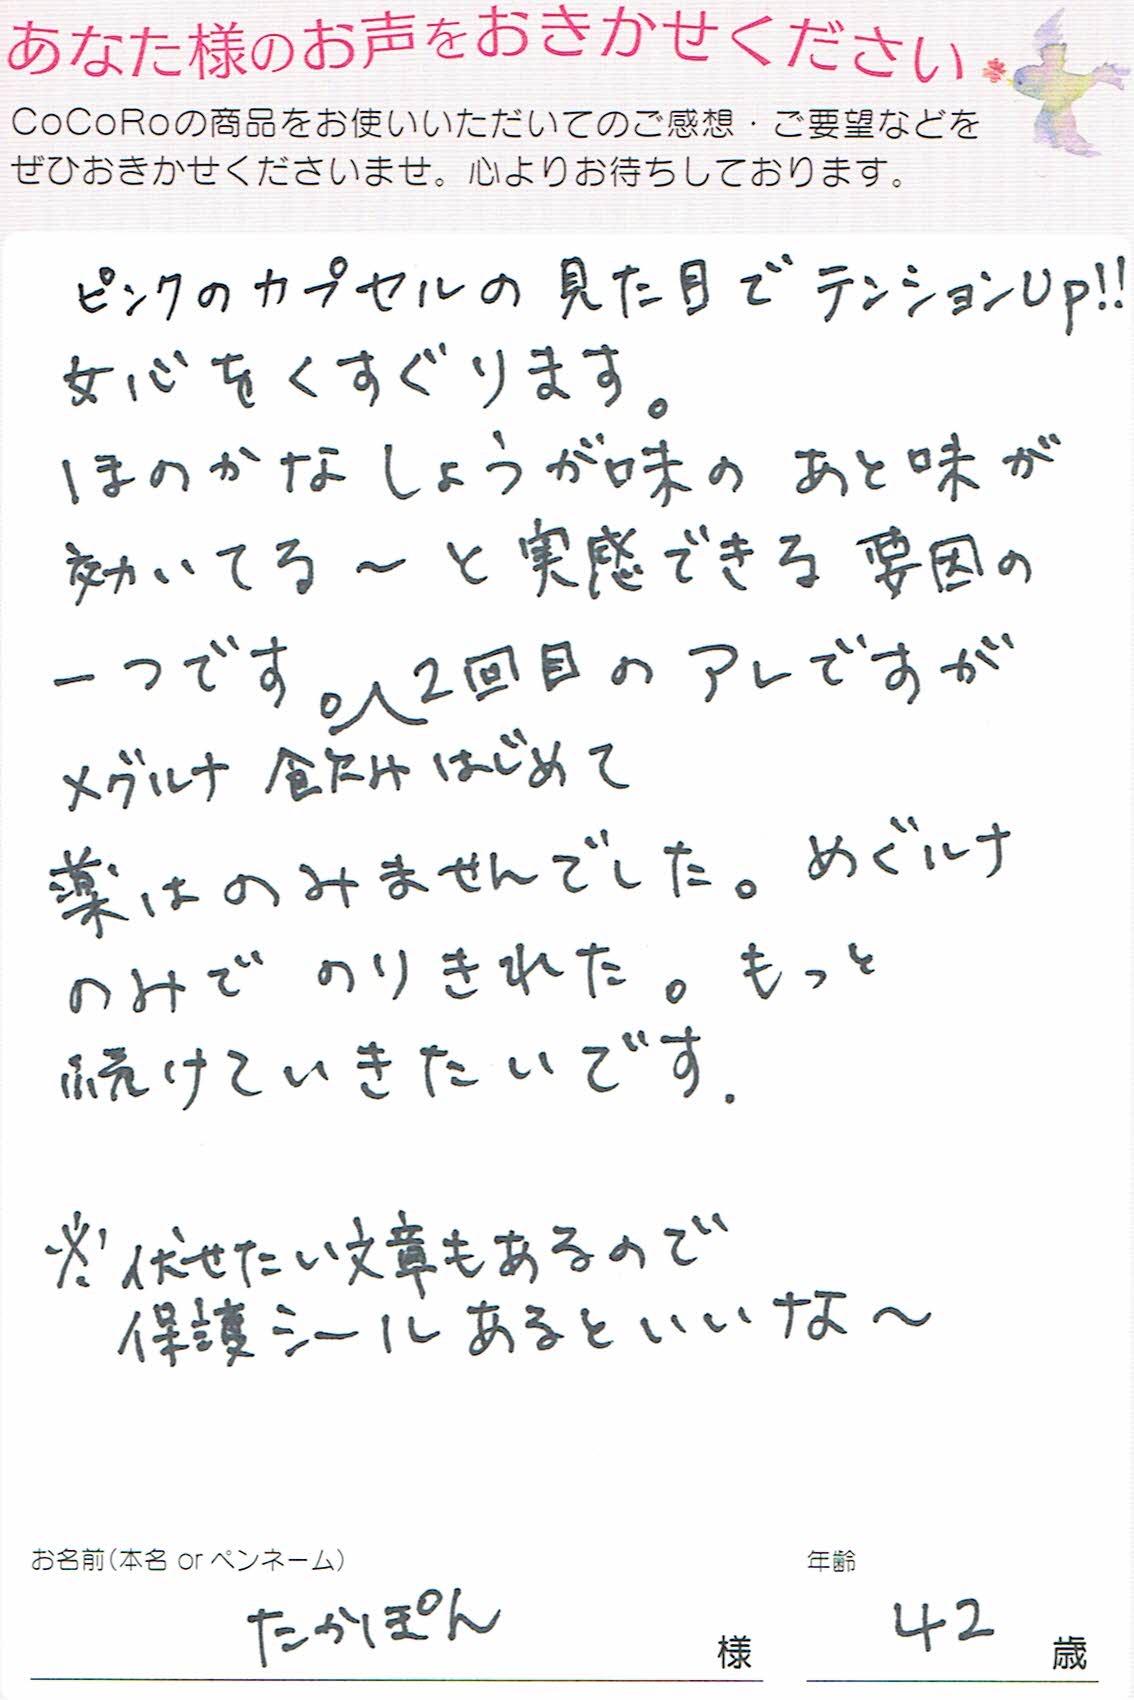 あなた様のお声をおきかせください
CoCoRoの商品をお使いいただいてのご感想・ご要望などを
ぜひおきかせくださいませ。心よりお待ちしております。
ピンクのカプセルの見た目でテンションUp!!
女心をくすぐります。
ほのかなしょうが味のあと味が
効いてる～と実感できる要因の
一つです。2回目のアレですが
メグルナ飲みはじめて
薬はのみませんでした。めぐルナ
のみでのりきれた。もっと
続けていきたいです.
※伏せたい文章もあるので
保護シールあるといいな～
お名前(本名 or ペンネーム)
たかぽん 様
年齢
42 歳